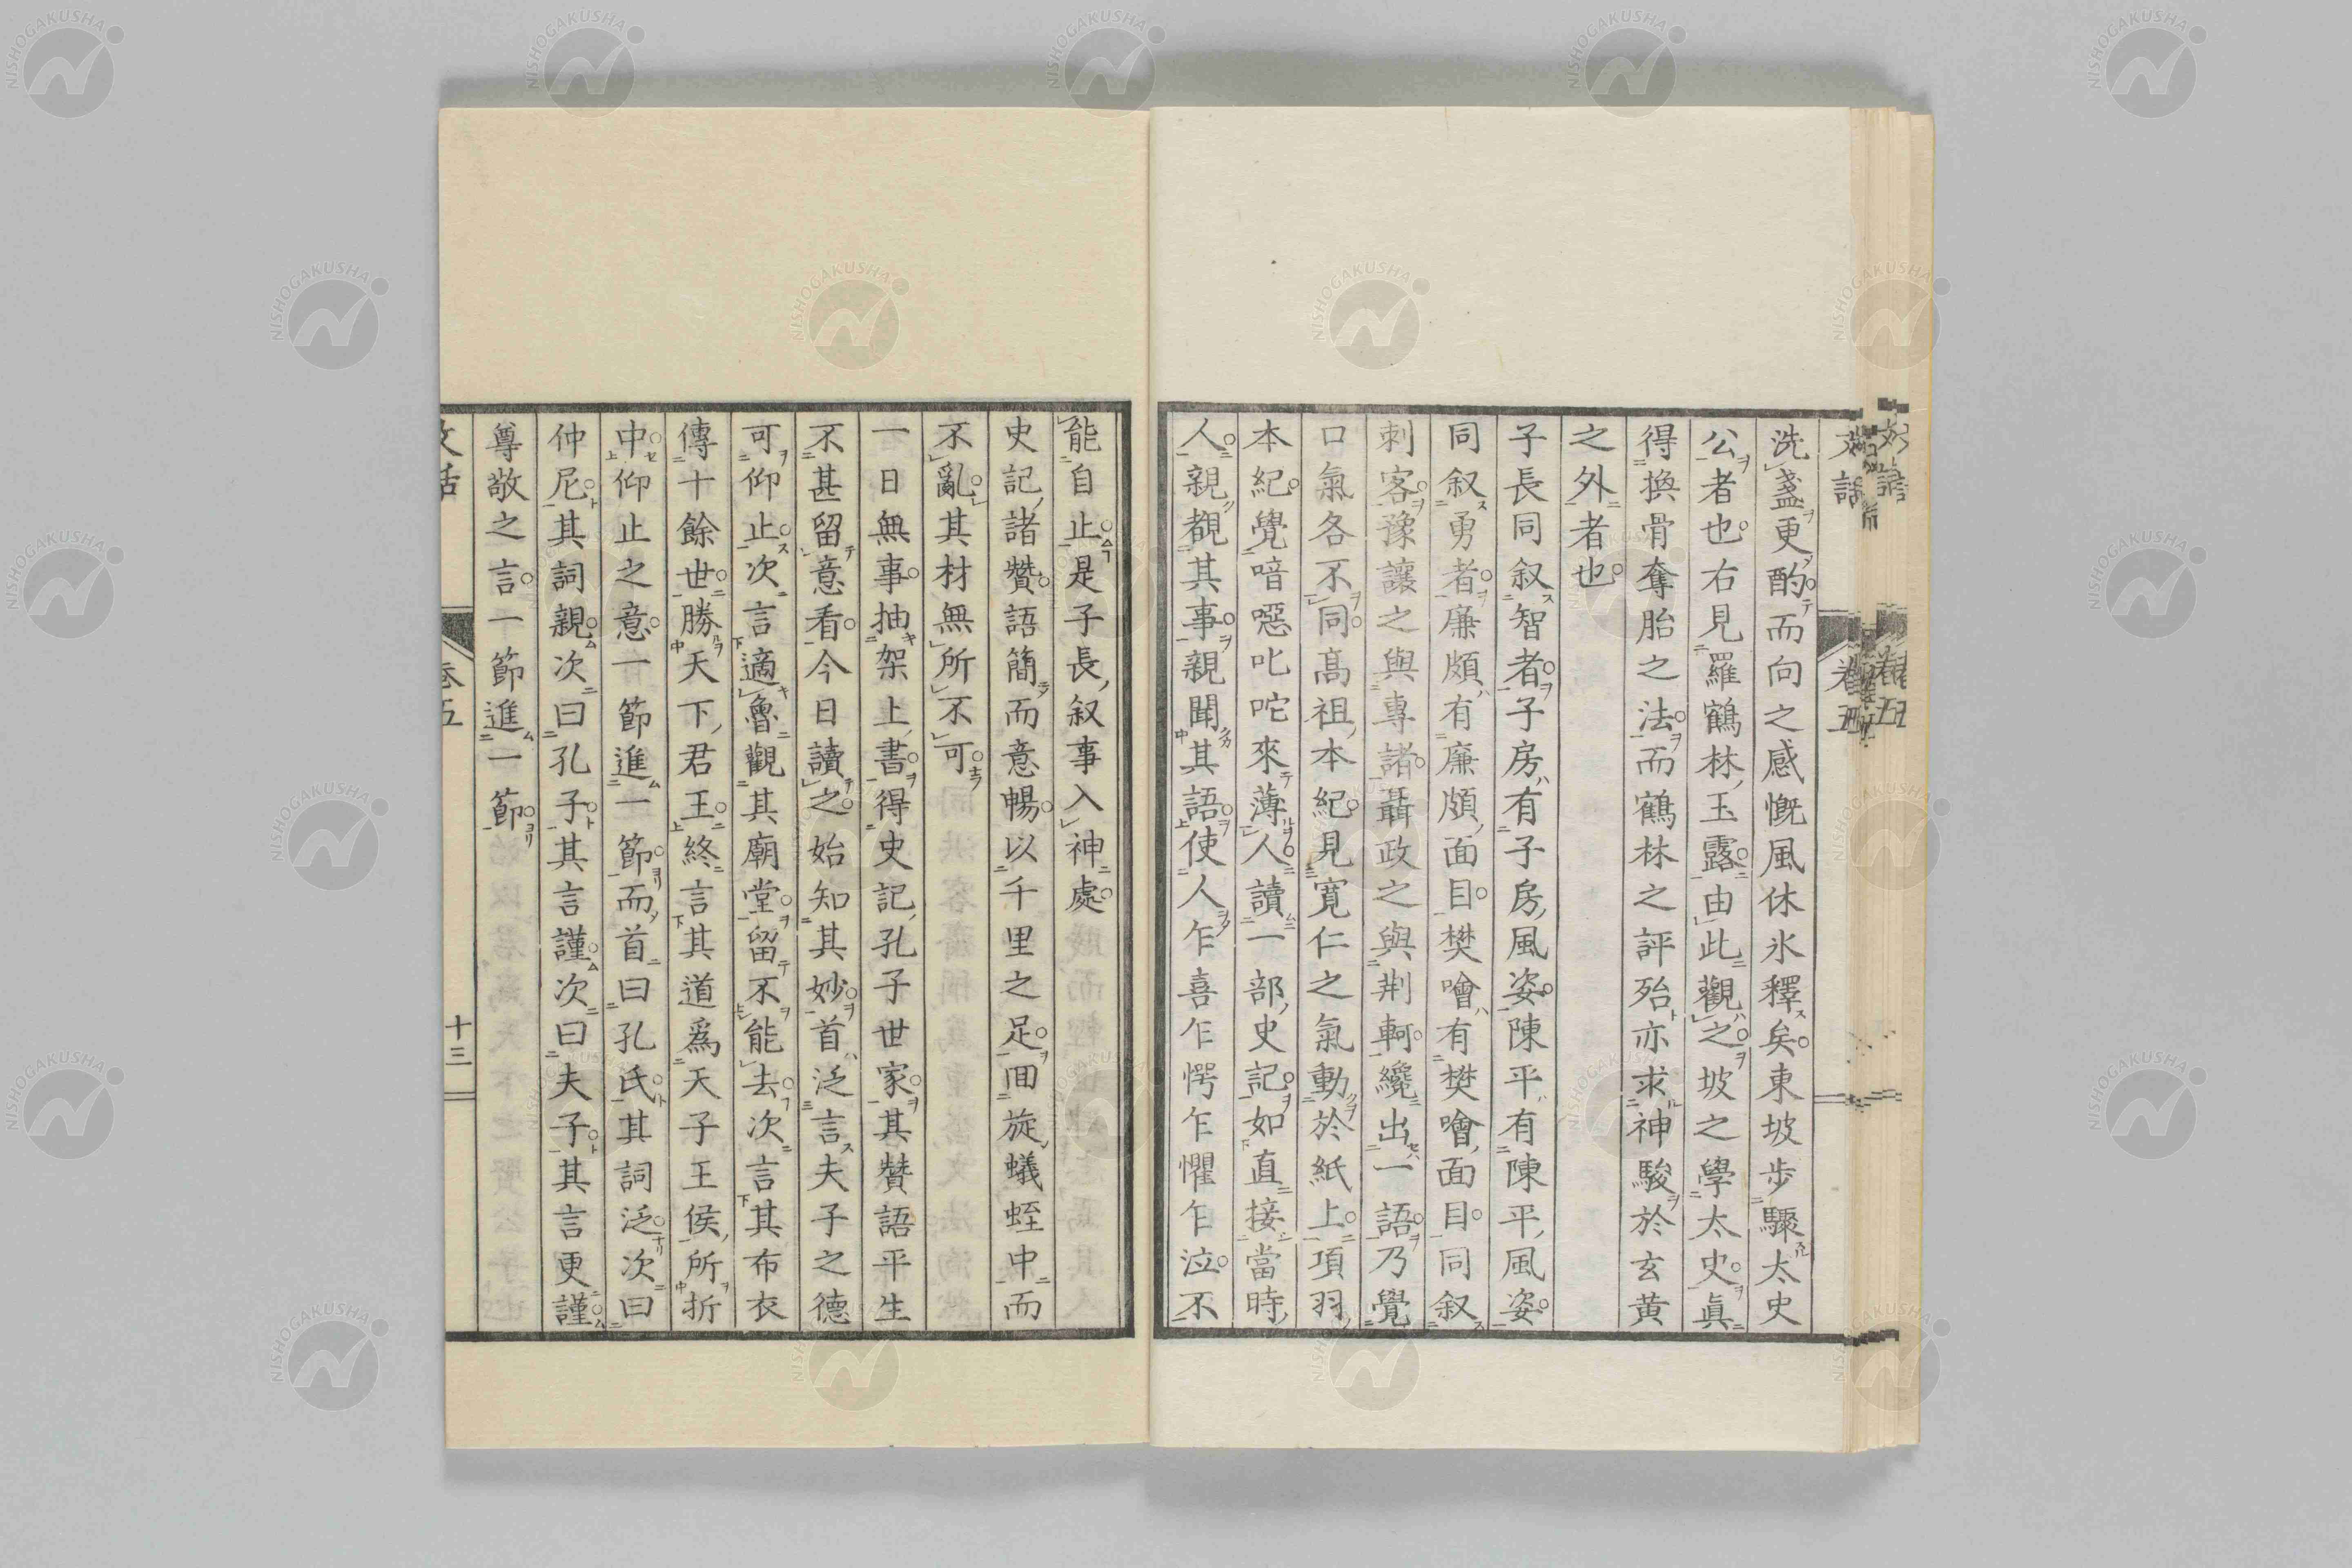 洗盞更酌而向之感慨風休氷釋矣東坡步驟太史
公者也右見羅鶴林玉露由此觀之坡之學太史眞
得換骨奪胎之法而鶴林之評殆亦求神駿於玄黃
之外者也
子長同叙智者子房有子房風姿陳平有陳平風姿
同叙勇者廉頗有廉頗面目樊噲有樊噲面目同叙
刺客豫讓之與專諸聶政之與荆軻纔出一語乃覺
口氣各不同高祖本紀見寬仁之氣動於紙上項羽
本紀覺喑噁叱咤來薄人讀一部史記如直接當時
人親覩其事親聞其語使人乍喜乍愕乍懼乍泣不
能自止是子長叙事入神處
史記諸贊語簡而意暢以千里之足囬旋蟻蛭中而
不亂其材無所不可
一日無事抽架上書得史記孔子世家其贊語平生
不甚留意看今日讀之始知其妙首泛言夫子之德
可仰止次言適魯觀其廟堂留不能去次言其布衣
傳十餘世勝天下君王終言其道爲天子王侯所折
中仰止之意一節進一節而首曰孔氏其詞泛次曰
仲尼其詞親次曰孔子其言謹次曰夫子其言更謹
尊敬之言一節進一節
文話
卷五
十三
文話
卷五
NISHOGAKUSHA